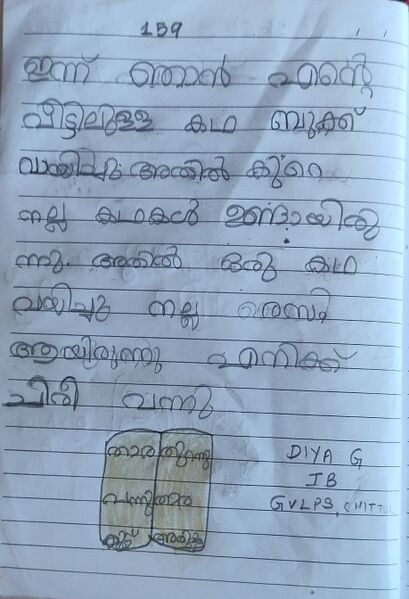 159
ഇന്ന് ഞാൻ എന്റെ
വീട്ടിലുള്ള കഥ ബുക്ക്
വായിച്ചു അതിൽ കുറെ
നല്ല കഥകൾ ഉണ്ടായിരു
ന്നു. അതിൽ ഒരു കഥ
വയിച്ചു നല്ല രെസം
ആയിരുന്നു എനിക്ക്
ചിരി വന്നു
DIYA G
IB
GVLPS, CHITTUR